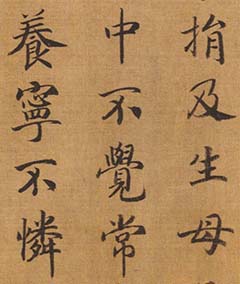 捐及生母
中不覺常
養寧不憐